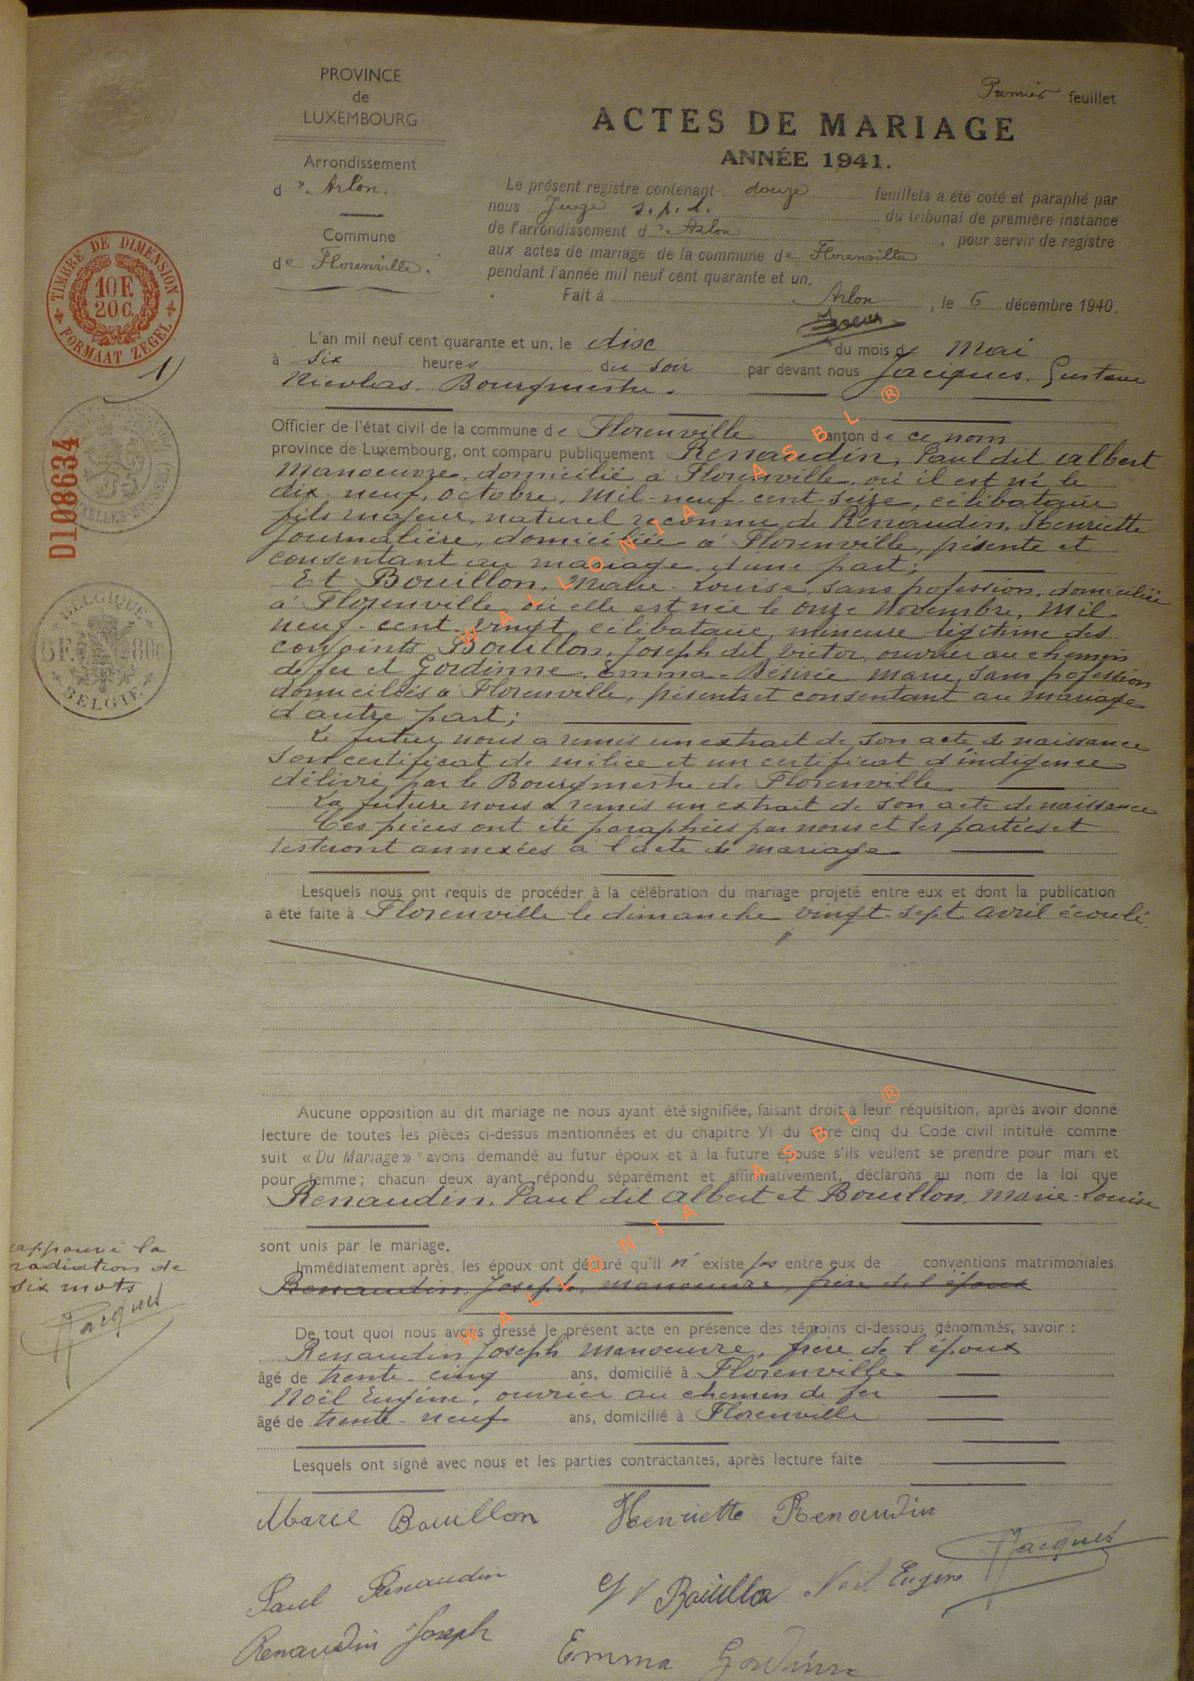 PROVINCE
de
LUXEMBOURG
Arrondissement
d'Arlon.
Commune
de Florenville.
Premier feuillet
ACTES DE MARIAGE
ANNÉE 1941.
Le présent registre contenant douze feuillets a été coté et paraphé par
nous Juge s.p.d. du tribunal de première instance
de l'arrondissement d'Arlon, pour servir de registre
aux actes de mariage de la commune de Florenville
pendant l'année mil neuf cent quarante et un.
Fait à Arlon, le 6 décembre 1940.
TIMBRE DE DIMENSION
10 F.
20 C.
FORMAAT ZEGEL
1)
D108634
BELGIQUE
8F. 80c
BELGIE
L'an mil neuf cent quarante et un, le dix du mois de Mai
à six heures du soir par devant nous Jacques, Gustave
Nicolas, Bourgmestre.
Officier de l'état civil de la commune de Florenville canton de ce nom
province de Luxembourg, ont comparu publiquement Renaudin, Paul dit Albert
manoeuvre, domicilié à Florenville, où il est né le
dix-neuf, octobre, mil-neuf-cent-seize, célibataire
fils majeur, naturel reconnu de Renaudin, Henriette
journalière, domiciliée à Florenville, présente et
consentant au mariage d'une part;
Et Bouillon, Marie-Louise, sans profession, domiciliée
à Florenville, où elle est née le onze Novembre, mil
neuf-cent-vingt, célibataire, mineure légitime des
conjoints Bouillon, Joseph dit Victor, ouvrier au chemin
de fer et Gordinne, Emma-Désirée Marie, sans profession
domiciliés à Florenville, présents et consentant au mariage
d'autre part;
Le futur nous a remis un extrait de son acte de naissance
son certificat de milice et un certificat d'indigence
délivré par le Bourgmestre de Florenville.
La future nous a remis un extrait de son acte de naissance
Ces pièces ont été paraphées par nous et les parties et
resteront annexées à l'acte de mariage
Lesquels nous ont requis de procéder à la célébration du mariage projeté entre eux et dont la publication
a été faite à Florenville le dimanche vingt-sept avril écoulé.
Aucune opposition au dit mariage ne nous ayant été signifiée, faisant droit à leur réquisition, après avoir donné
lecture de toutes les pièces ci-dessus mentionnées et du chapitre VI du titre cinq du Code civil intitulé comme
suit « Du Mariage » avons demandé au futur époux et à la future épouse s'ils veulent se prendre pour mari et
pour femme; chacun deux ayant répondu séparément et affirmativement, déclarons au nom de la loi que
Renaudin, Paul dit Albert et Bouillon, Marie-Louise
sont unis par le mariage.
Immédiatement après, les époux ont déclaré qu'il n'existe pas entre eux de conventions matrimoniales
Renaudin, Joseph, manoeuvre, frère de l'époux
approuvé la
radiation de
six mots
Jacques
De tout quoi nous avons dressé le présent acte en présence des témoins ci-dessous dénommés, savoir :
Renaudin Joseph manoeuvre, frère de l'époux
âgé de trente-cinq ans, domicilié à Florenville
Noël Eugène, ouvrier au chemin de fer
âgé de trente-neuf ans, domicilié à Florenville
Lesquels ont signé avec nous et les parties contractantes, après lecture faite
Marie Bouillon Henriette Renaudin
Jacques
Paul Renaudin Bouillon Noël Eugène
Renaudin Joseph
Emma Gordinne
WALLONIA ASBL ®
WALLONIA ASBL ®